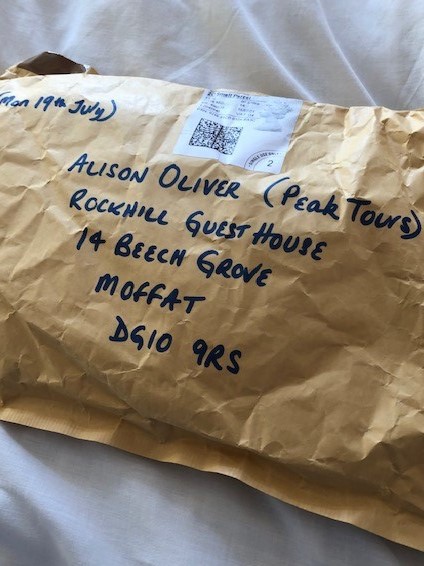 (Mon 19th July)
Small Parcel
2
ALISON OLIVER (Peak Tours)
ROCKHILL GUEST HOUSE
14 BEECH GROVE
MOFFAT
DG10 9RS